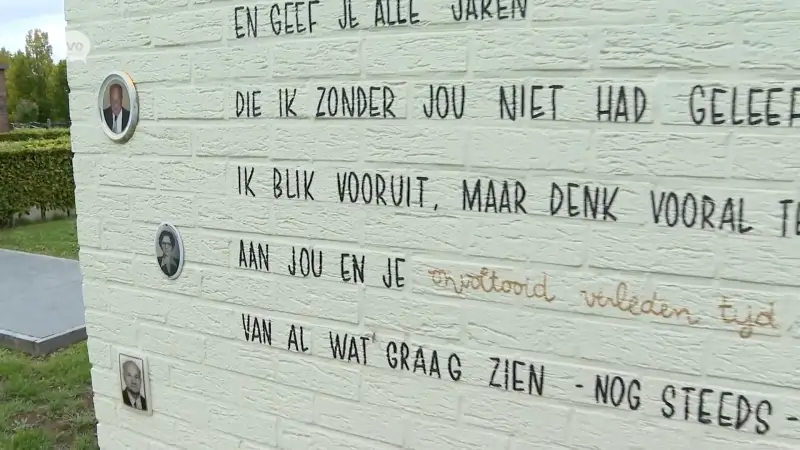 EN GEEF JE ALLE JAREN
DIE IK ZONDER JOU NIET HAD GELEEF
IK BLIK VOORUIT, MAAR DENK VOORAL TE
AAN JOU EN JE onvoltooid verleden tijd
VAN AL WAT GRAAG ZIEN - NOG STEEDS -